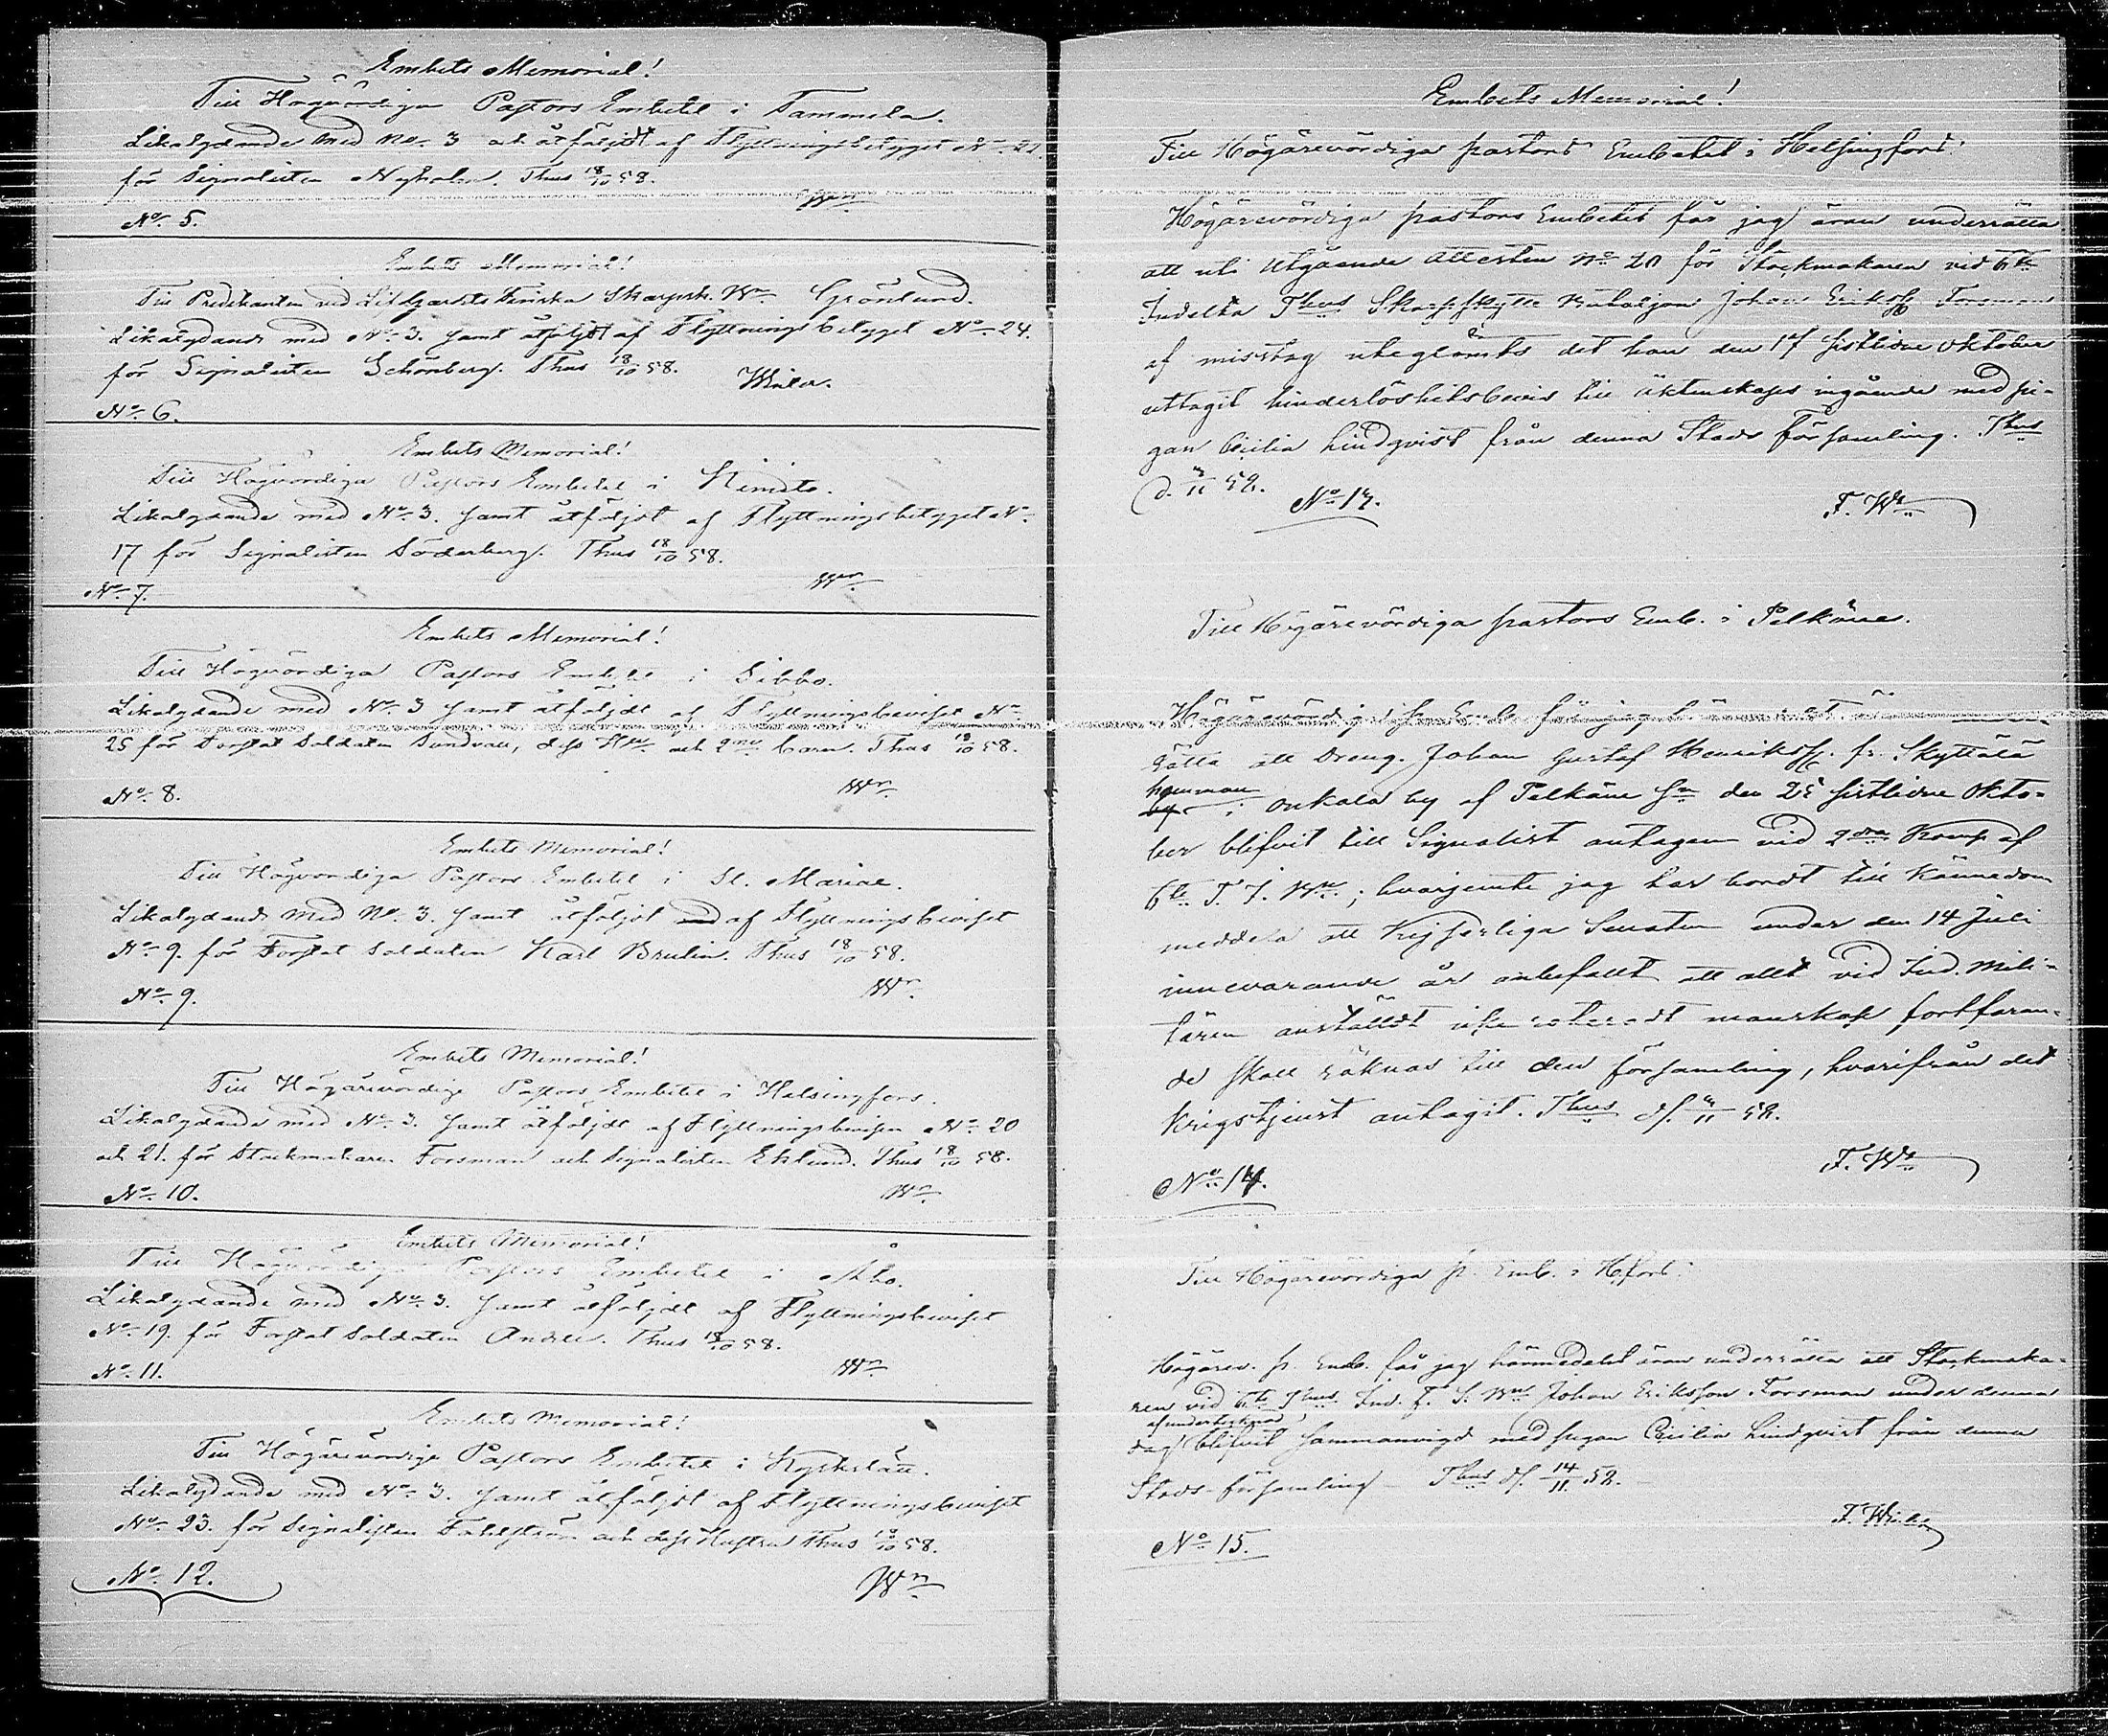 Embets Memorial!
Till Högvördiga Pastors Embetet i Tammela.
Likalydande med No 3 och åtföljdt af Flyttningsbetyget No 22
för Signalisten Nyholm. Thus 18/10 58.
Wn
No 5.
Embets Memorial!
Till Predikanten vid Lifgardets Finska Skarpsk. Bn Grönlund.
Likalydande med No 3. samt åtföljdt af Flyttningsbetyget No 24.
för Signalisten Schönberg. Thus 18/10 58.
No 6.
Embets Memorial!
Till Högvördiga Pastors Embetet i Kimito.
Likalydande med No 3. samt åtföljdt af Flyttningsbetyget No
17 för Signalisten Söderberg. Thus 18/10 58.
Wn
No 7.
Embets Memorial!
Till Högvördiga Pastors Embetet i Sibbo.
Likalydande med No 3 samt åtföljdt af Flyttningsbeviset No
25 för Forstat Soldaten Sundvall, dess Hu och 2ne barn. Thus 18/10 58.
Wn
No 8.
Embets Memorial!
Till Högvördiga Pastors Embetet i St. Mariae.
Likalydande med No 3. samt åtföljdt af Flyttningsbeviset
No 9. för Forstat Soldaten Karl Brulin. Thus 18/10 58.
Wn
No 9.
Embets Memorial!
Till Högärevördige Pastors Embetet i Helsingfors.
Likalydande med No 3. samt åtföljdt af Flyttningsbevisen No 20
och 21. för Stockmakaren Forsman och Signalisten Eklund. Thus 18/10 58.
Wn
No 10.
Embets Memorial!
Till Högvördiga Pastors Embetet i Åbo.
Likalydande med No 3. samt åtföljdt af Flyttningsbeviset
No 19. för Forstat Soldaten Andell. Thus 18/10 58.
Wn
No 11.
Embets Memorial!
Till Högärevördige Pastors Embetet i Kyrkslätt.
Likalydande med No 3. samt åtföljdt af Flyttningsbeviset
No 23. för Signalisten Fahlström och dess Hustru Thus 18/10 58.
Wn
No 12.
Embets Memorial!
Till Högärevördiga pastors Embetet i Helsingfors.
Högärevördiga pastors Embetet får jag äran underrätta
att uti utgående Attesten No 20 för Stockmakaren vid 6te
Indelta Thus Skarpskytte Bataljon Johan Eriksson Forsman
af misstag uteglömts det han den 17 sistlidne Oktober
uttagit hinderlöshetsbevis till äktenskaps ingående med pi-
gan Cecilia Lindqvist från denna Stads församling. Thus
d. 3/11 58.
No 13.
F. Wn
Till Högärevördiga pastors Emb. i Pelkäne.
Högärevördiga p. Emb. får jag
rätta att Dreng. Johan Gustaf Henriksson fr. Skyttälä
hemman
i Onkala by af Pelkäne Sn den 25 sistlidne Okto-
ber blifvit till Signalist antagen vid 2dra Komp af
6te T. I. Bn; hvarjemte jag har bordt till kännedom
meddela att Kejserliga Senaten under den 14 Juli
innevarande år anbefallt att allt vid Ind. mili-
tären anstäldt icke roteradt manskap fortfaran-
de skall räknas till den församling, hvarifrån det
krigstjenst antagit. Thus d. 3/11 58.
F. Wn
No 14.
Till Högärevördiga p. Emb. i H.fors.
Högärev. p. Emb. får jag härmedelst äran underrätta att Stockmaka-
ren vid 6te Thus Ind. F. S. Bn Johan Eriksson Forsman under denna
af undertecknad
dag blifvit sammanvigd med pigan Cecilia Lindqvist från denna
Stads-församling Thus d. 14/11 58.
No 15.